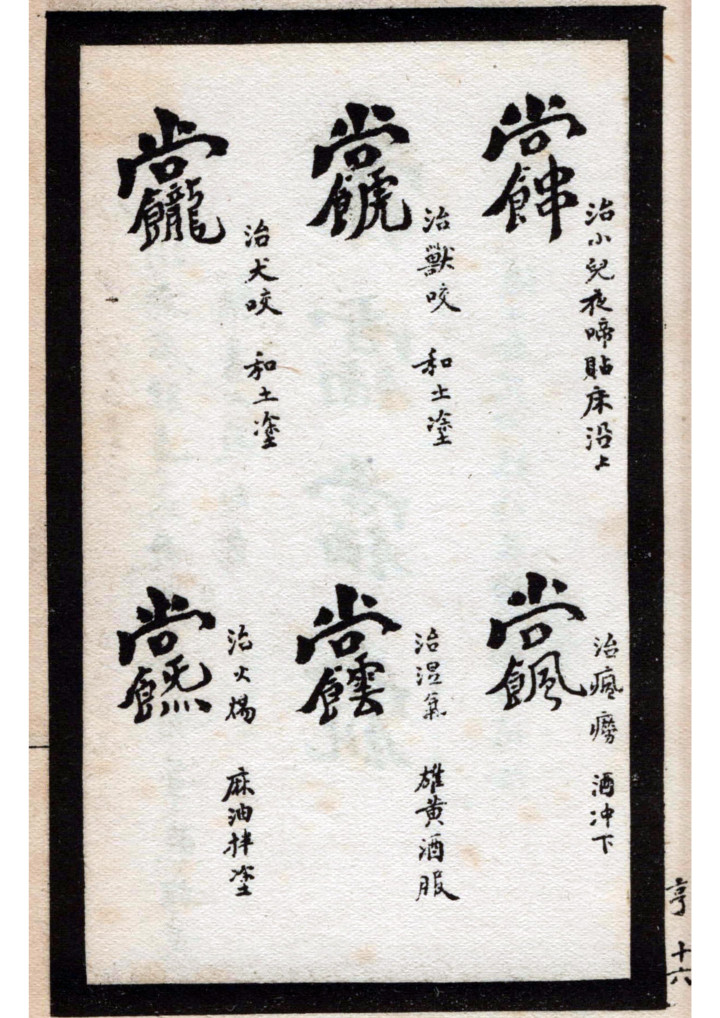 治小兒夜啼貼床沿上
治獸咬 和土塗
治犬咬 和土塗
治瘋癆 酒冲下
治湿氣 雄黄酒服
治火煬 麻油拌塗
亨 十六